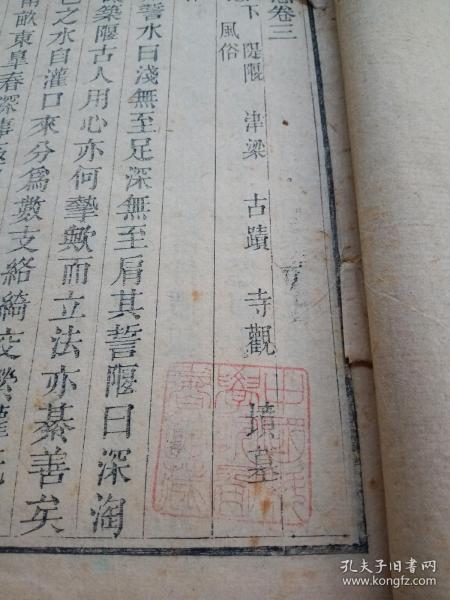 志卷三
下 隄堰 津梁 古蹟 寺觀 墳墓
風俗
誓水曰淺無至足深無至肩其誓堰曰深淘
築堰古人用心亦何摯歟而立法亦綦善矣
邑之水自灌口來分爲數支絡綺交縈灌
畝東皋春深事
孔夫子旧书网
www.kongfz.com